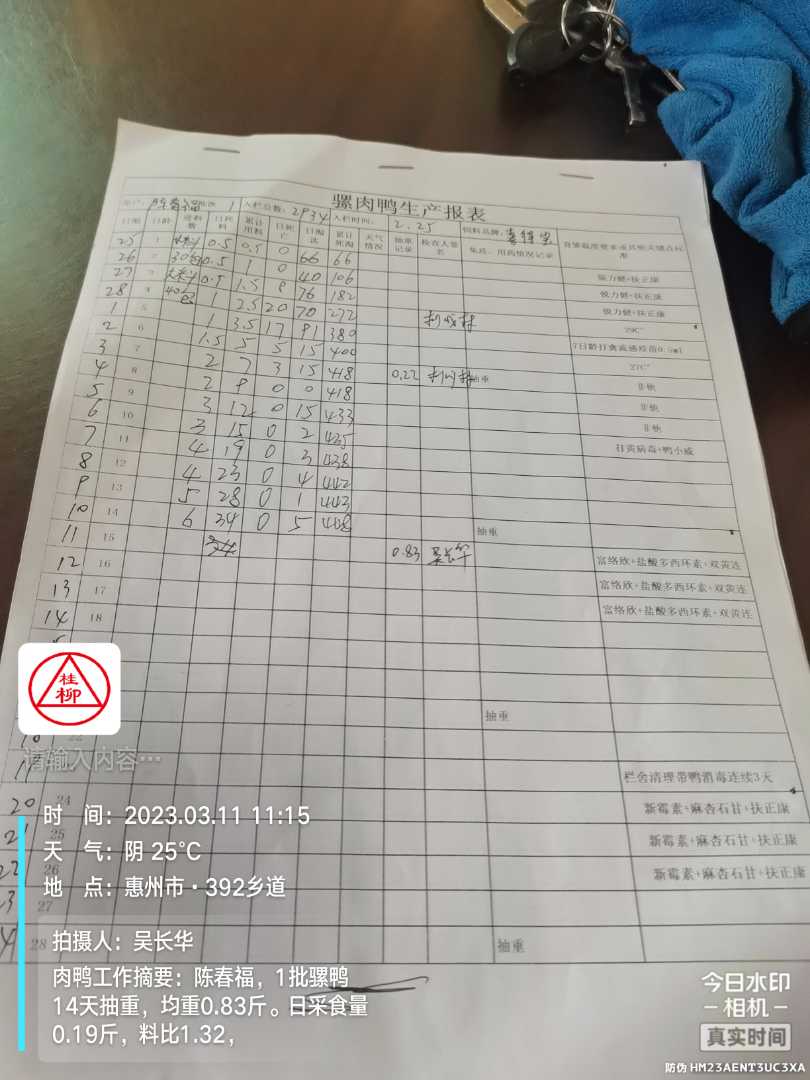 骡肉鸭生产报表
陈春福 批次 1 入栏总数: 2934 入栏时间: 2.25 饲料品牌:
日期 日龄 进料数 日耗料 累计用料 日死亡 日淘汰 累计死淘 天气情况 抽重记录 检查人签名 免疫、用药情况记录
25 1 0.5 0.5 0 66 66
26 2 1 0 40 106 强力健+扶正康
27 3 0.5 1.5 76 182 强力健+扶正康
28 4 1 2.5 20 70 272 强力健+扶正康
1 5 1 3.5 17 91 380 29C°
2 6 1.5 5 5 15 400 7日龄打禽流感疫苗0.5ml
3 7 2 7 3 15 418 27C°
4 8 2 9 0 0 418 0.22 抽重
5 9 3 12 0 15 433
6 10 3 15 0 2 435
7 11 4 19 0 3 438
8 12 4 23 0 4 442
9 13 5 28 0 1 443
10 14 6 34 0 5 448 抽重
11 15 0.83 吴长华
12 16 富络欣+盐酸多西环素+双黄连
13 17 富络欣+盐酸多西环素+双黄连
14 18 富络欣+盐酸多西环素+双黄连
桂柳
抽重
22
请输入内容…
栏舍清理带鸭消毒连续3天
20 24 新霉素+麻杏石甘+扶正康
21 25 新霉素+麻杏石甘+扶正康
22 26 新霉素+麻杏石甘+扶正康
27
28 抽重
时 间: 2023.03.11 11:15
天 气: 阴 25℃
地 点: 惠州市·392乡道
拍摄人: 吴长华
肉鸭工作摘要: 陈春福，1批骡鸭
14天抽重，均重0.83斤。日采食量
0.19斤，料比1.32，
今日水印
-相机-
真实时间
防伪 HM23AENT3UC3XA